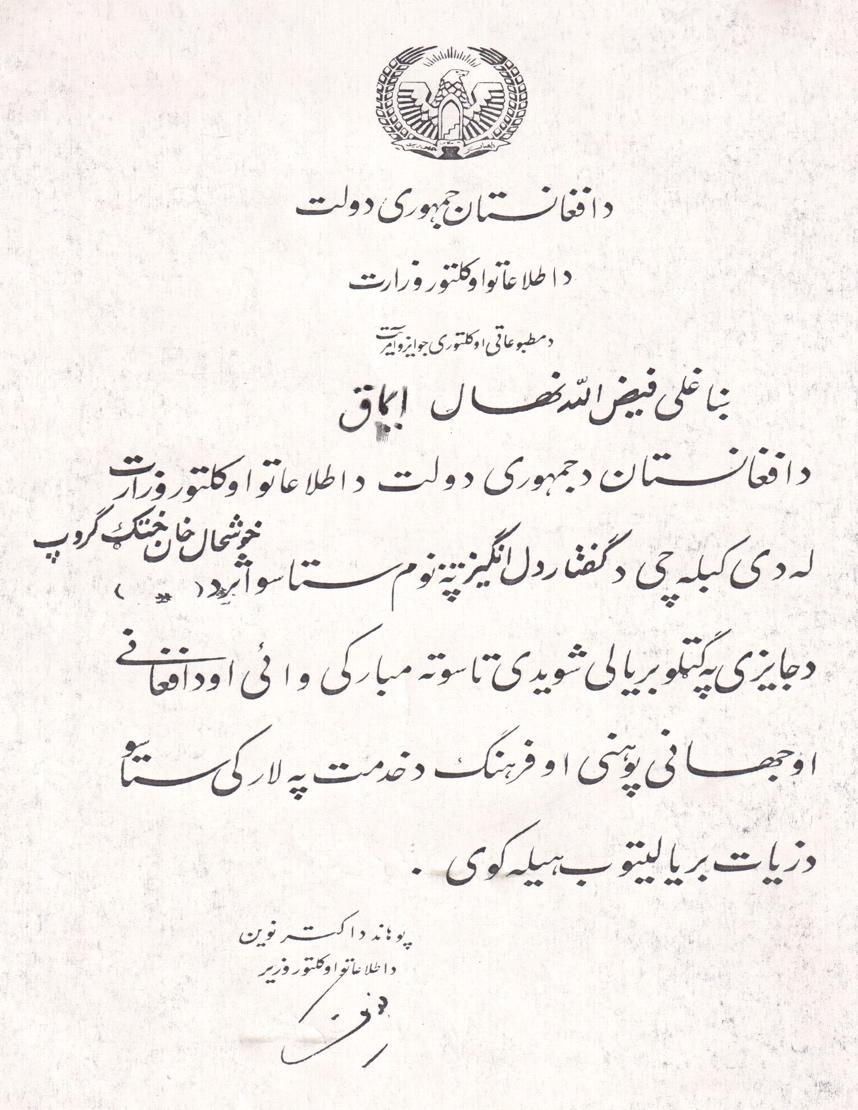 د افغانستان جمهوری دولت
د اطلاعاتو او کلتور وزارت
د مطبوعاتی او کلتوری جوایزو آمریت
ښاغلی فیض الله نهال ایماق
د افغانستان د جمهوری دولت د اطلاعاتو او کلتور وزارت
له دی کبله چی د گفتار دل انگیز په نوم ستاسو اثر د خوشحال خان خټک گروپ ( )
د جایزی په گټلو بریالی شویدی تاسو ته مبارکی وائی او د افغانی
او جهانی پوهنی او فرهنگ د خدمت په لار کی ستاسو
د زیات بریالیتوب هیله کوی .
پوهاند داکتر نوین
د اطلاعاتو او کلتور وزیر